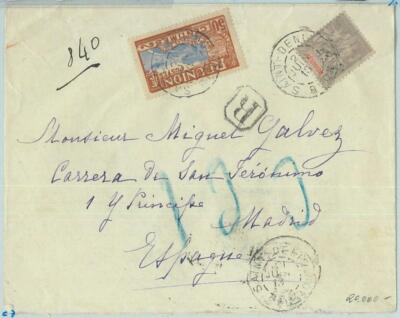 840
50
RÉUNION
SAINT-DENIS
R
Monsieur Miguel Galvez
Carrera de San Jerónimo
1 y Principe Madrid
Espagne
130
20,000-